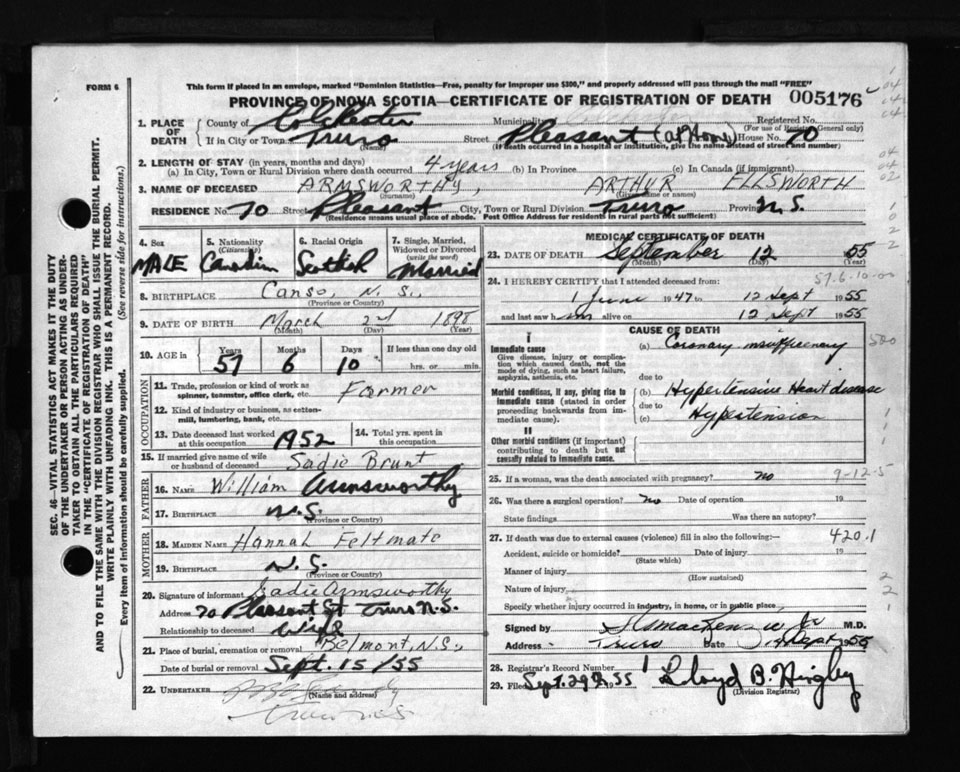 FORM 6
This form if placed in an envelope, marked "Dominion Statistics—Free, penalty for improper use $300," and properly addressed will pass through the mail "FREE"
PROVINCE OF NOVA SCOTIA—CERTIFICATE OF REGISTRATION OF DEATH 005176
1. PLACE OF DEATH
County of Colchester Municipality Registered No.
(For use of Registrar General only)
If in City or Town Truro Street Pleasant (at Home) House No. 70
(Name) (If death occurred in a hospital or institution, give the name instead of street and number)
2. LENGTH OF STAY (in years, months and days)
(a) In City, Town or Rural Division where death occurred 4 years (b) In Province (c) In Canada (if immigrant)
3. NAME OF DECEASED ARMSWORTHY, ARTHUR ELLSWORTH
(Surname) (Given or names)
RESIDENCE No. 70 Street Pleasant City, Town or Rural Division Truro Province N.S.
(Residence means usual place of abode. Post Office Address for residents in rural parts not sufficient)
4. Sex MALE
5. Nationality (Citizenship) Canadin
6. Racial Origin Scottish
7. Single, Married, Widowed or Divorced (write the word) Married
8. BIRTHPLACE Canso, N.S.,
(Province or Country)
9. DATE OF BIRTH March 2nd 1898
(Month) (Day) (Year)
10. AGE in Years 57 Months 6 Days 10 If less than one day old
hrs. or min.
OCCUPATION
11. Trade, profession or kind of work as spinner, teamster, office clerk, etc. Farmer
12. Kind of industry or business, as cotton-mill, lumbering, bank, etc.
13. Date deceased last worked at this occupation 1952
14. Total yrs. spent in this occupation
15. If married give name of wife or husband of deceased Sadie Brunt
FATHER
16. NAME William Armsworthy
17. BIRTHPLACE N.S.
(Province or Country)
MOTHER
18. MAIDEN NAME Hannah Feltmate
19. BIRTHPLACE N.S.
(Province or Country)
20. Signature of informant Sadie Armsworthy
Address 70 Pleasant St Truro N.S.
Relationship to deceased Wife
21. Place of burial, cremation or removal Belmont, N.S.,
Date of burial or removal Sept. 15/55
22. UNDERTAKER
(Name and address)
MEDICAL CERTIFICATE OF DEATH
23. DATE OF DEATH September 12 1955
(Month) (Day) (Year)
57-6-10-00
24. I HEREBY CERTIFY that I attended deceased from:
1 June 1947 to 12 Sept 1955
and last saw him alive on 12 Sept 1955
CAUSE OF DEATH
I
Immediate cause
Give disease, injury or complication which caused death, not the mode of dying, such as heart failure, asphyxia, asthenia, etc.
(a) Coronary insufficency
due to
Morbid conditions, if any, giving rise to immediate cause (stated in order proceeding backwards from immediate cause).
(b) Hypertensive Heart disease
due to
(c) Hypertension
II
Other morbid conditions (if important) contributing to death but not causally related to immediate cause.
25. If a woman, was the death associated with pregnancy? no
9-12-5
26. Was there a surgical operation? no Date of operation 19
State findings Was there an autopsy?
27. If death was due to external causes (violence) fill in also the following:— 420.1
Accident, suicide or homicide? Date of injury 19
(State which)
Manner of injury
(How sustained)
Nature of injury
Specify whether injury occurred in industry, in home, or in public place
Signed by M.D.
Address Truro Date Sept 1955
28. Registrar's Record Number 1
29. Filed Sept. 29th 1955 Lloyd B. Higley
(Division Registrar)
SEC. 46—VITAL STATISTICS ACT MAKES IT THE DUTY
OF THE UNDERTAKER OR PERSON ACTING AS UNDER-
TAKER TO OBTAIN ALL THE PARTICULARS REQUIRED
IN THE "CERTIFICATE OF REGISTRATION OF DEATH"
AND TO FILE THE SAME WITH THE DIVISION REGISTRAR WHO SHALL ISSUE THE BURIAL PERMIT.
WRITE PLAINLY WITH UNFADING INK. THIS IS A PERMANENT RECORD.
Every item of information should be carefully supplied. (See reverse side for instructions.)